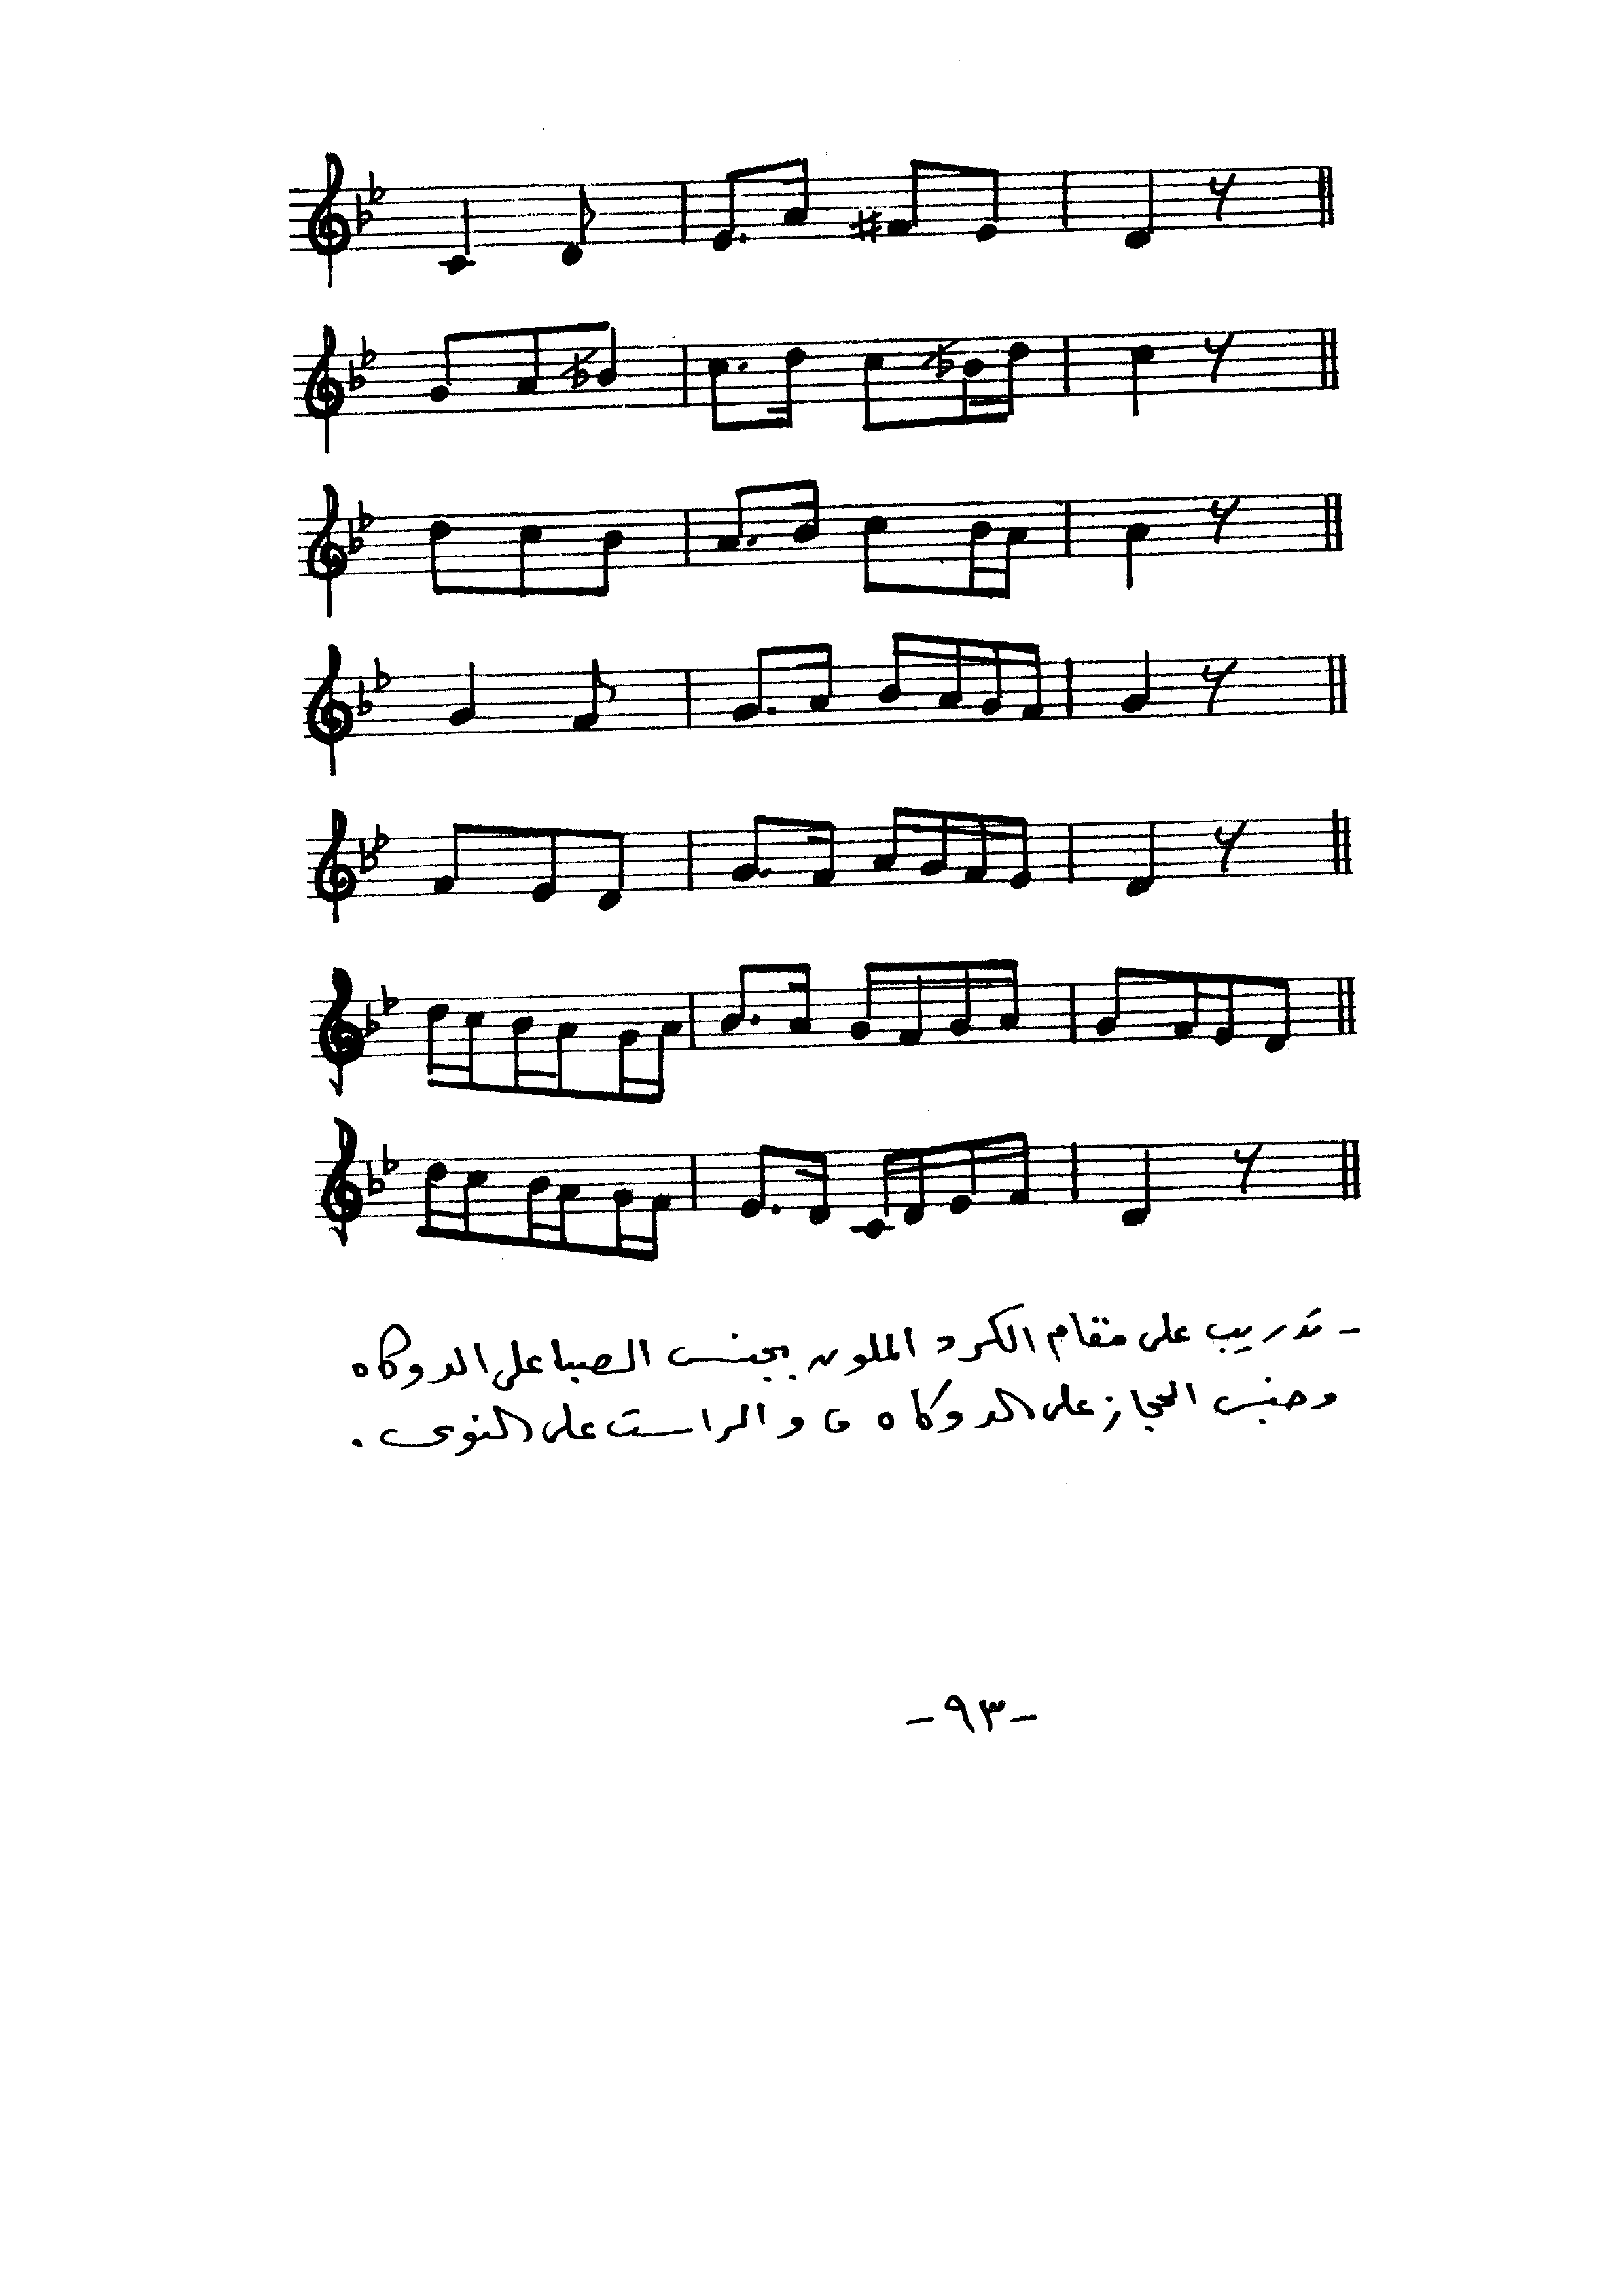 - تدريب على مقام الكرد الملون بجنس الصبا على الدوكاه
وجنس الحجاز على الدوكاه ، والراست على النوى .
- ٩٣ -